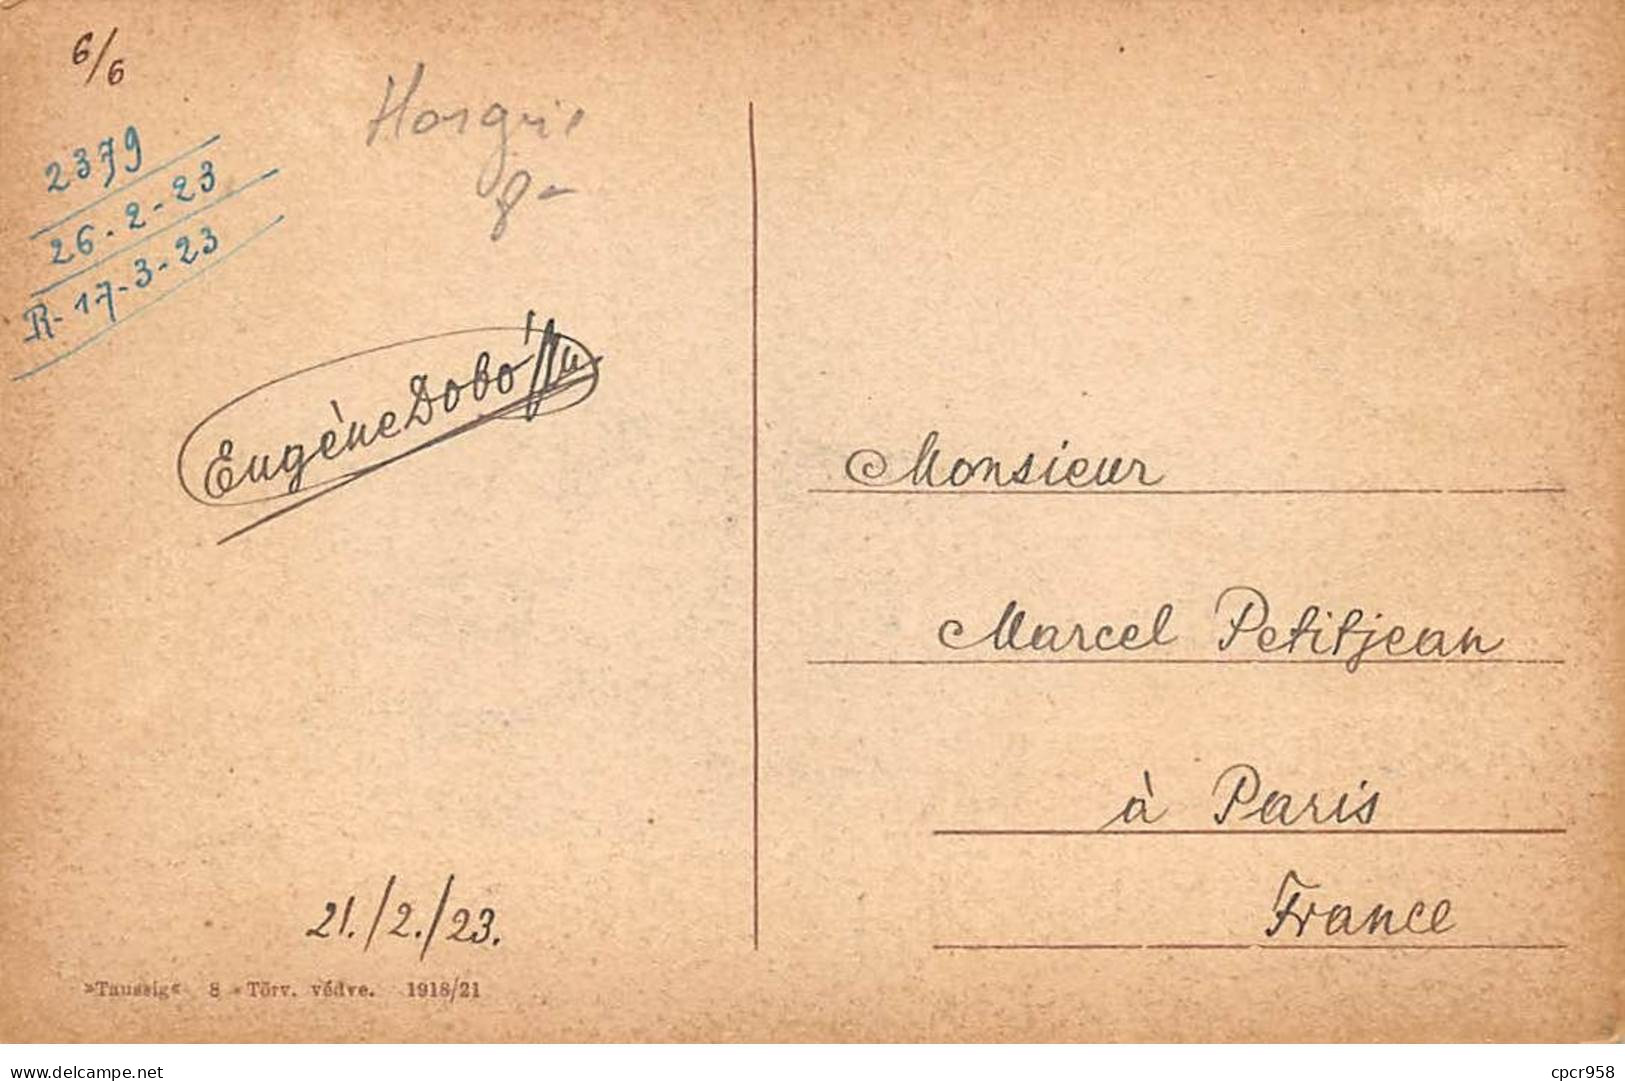 6/6
Hongrie
8-
2379
26-2-23
R-17-3-23
Eugène Dobó
Monsieur
Marcel Petitjean
à Paris
France
21./2./23.
»Taussig« 8 Törv. védve. 1918/21
www.delcampe.net
cpcr958